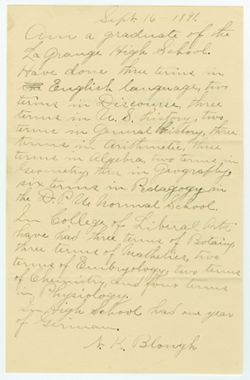 Sept. 16 - 1891.
Am a graduate of the
La Grange High School.
Have done three terms in
English language, two
terms in Discourse, three
terms in U.S. history, two
terms in General History, three
terms in Arithmetic, three
terms in Algebra, two terms in
Geometry, three in Geography,
six terms in Pedagogy in
the D.P.U. Normal School.
In College of Liberal Arts,
have had three terms of Botany,
three terms of , two
terms of Embryology, two terms
of Chemistry, and four terms
in Physiology.
in High School had one year
of German.
N. K. Blough